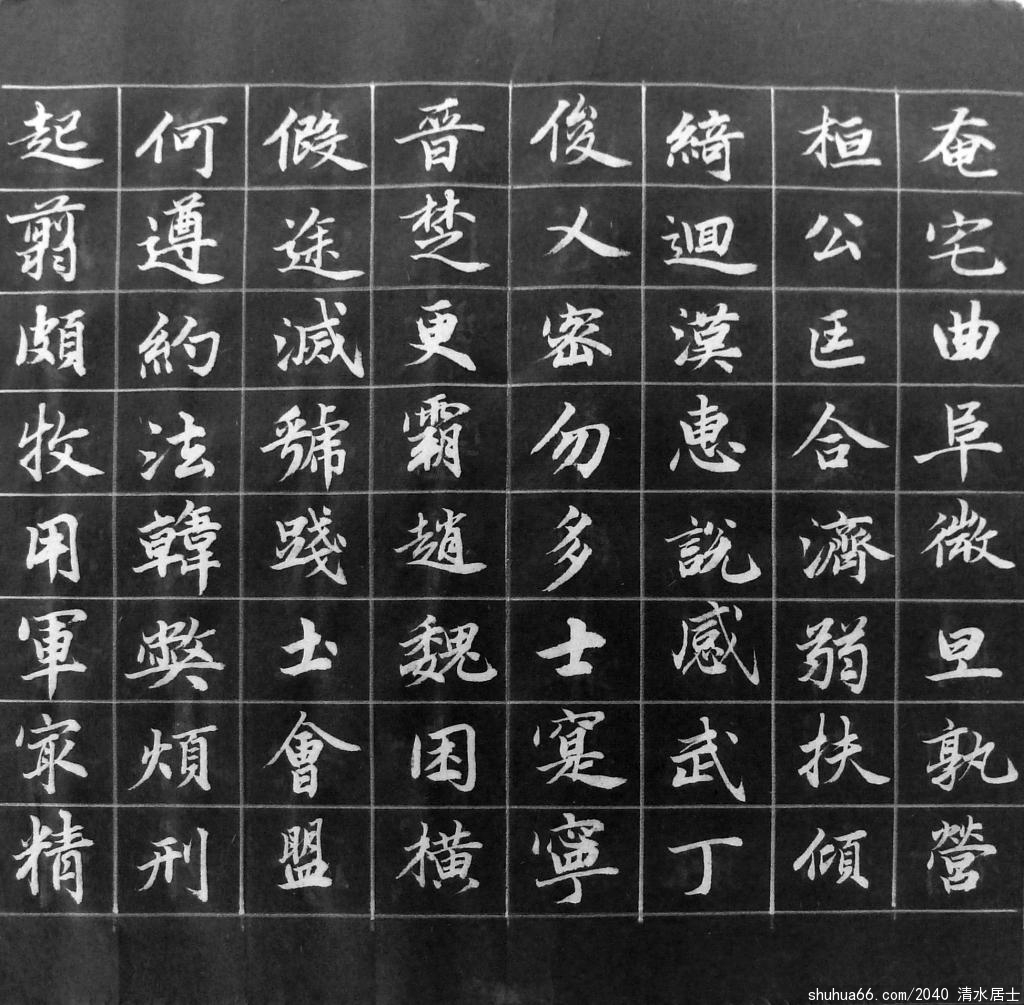 奄宅曲阜微旦孰營
桓公匡合濟弱扶傾
綺迴漢惠說感武丁
俊乂密勿多士寔寧
晉楚更霸趙魏困橫
假途滅虢踐土會盟
何遵約法韓弊煩刑
起翦頗牧用軍㝡精
shuhua66.com/2040 清水居士